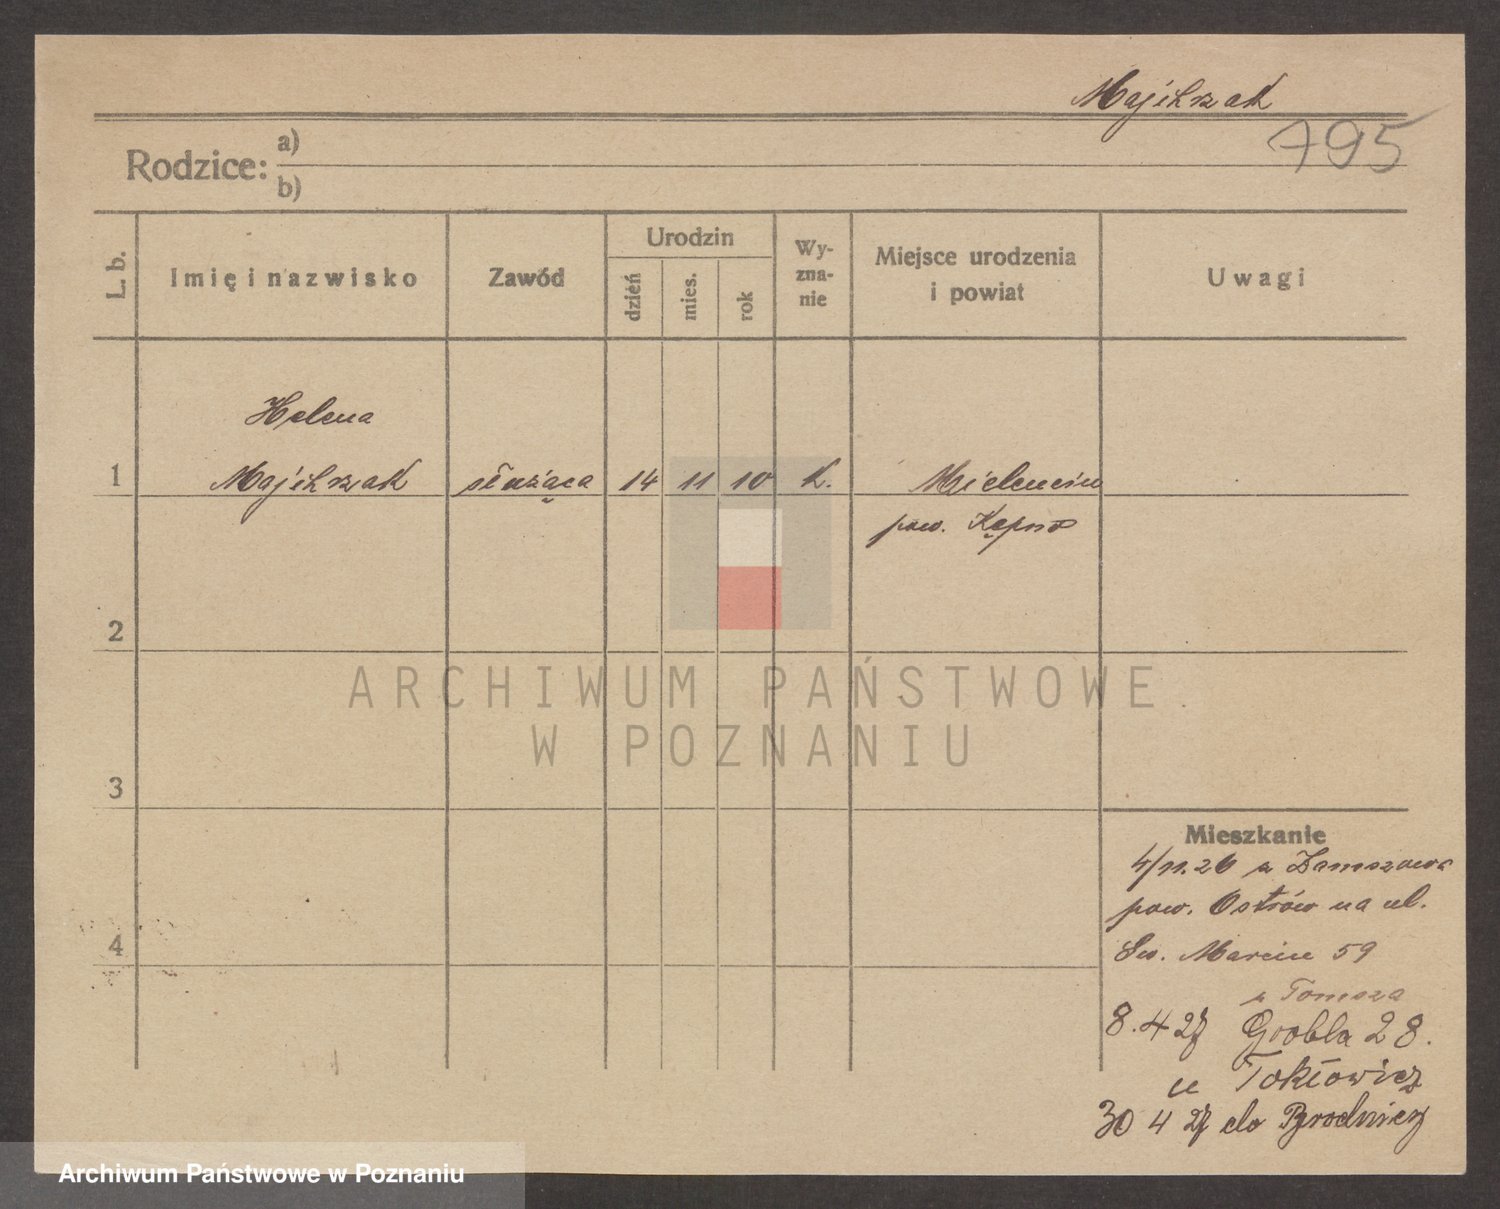 Majchrzak
795
Rodzice:
a)
b)
L. b.
Imię i nazwisko
Zawód
Urodzin
dzień
mies.
rok
Wy-
zna-
nie
Miejsce urodzenia
i powiat
Uwagi
Helena
1 Majchrzak służąca 14 11 10 k. Mielencin
pow. Kępno
2
3
4
ARCHIWUM PAŃSTWOWE
W POZNANIU
Mieszkanie
4/11.26 z
pow. Ostrów na ul.
Św. Marcin 59
u Tomsza
8.4 27 Grobla 28.
u Tokłowicz
30 4 27 do Brodnicy
Archiwum Państwowe w Poznaniu